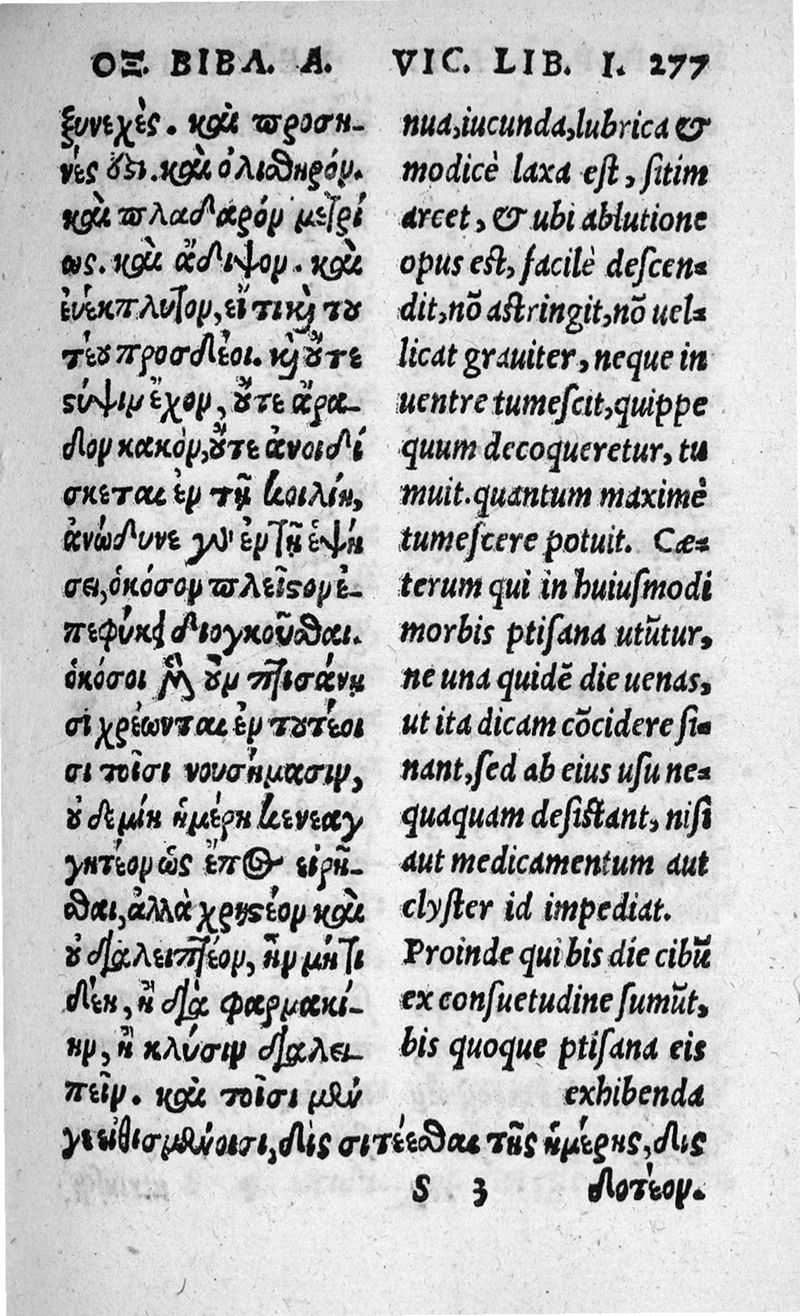 ΟΞ. ΒΙΒΛ. Α. VIC. LIB. I. 277
ξυνεχὲς. καὶ προση-
νές ὅτι. καὶ ὀλισθηρόν.
καὶ πλαδαρόν μετρί
ως. καὶ ἄδιψον. καὶ
ἐνέκπλυτον, εἴ τι καὶ τού
τέου προσδέοι. καὶ οὔτε
στύψιν ἔχον, οὔτε ἄρα-
δον κακόν, οὔτε ἀνοιδί
σκεται ἐν τῇ κοιλίῃ,
ἀνώδυνε γὰρ ἐν τῇ ἑψή
σει, ὁκόσον πλεῖστον ἐ-
πεφύκει διογκοῦσθαι.
ὁκόσοι μὲν οὖν πτισάνη
σι χρέωνται ἐν τουτέοι
σι τοῖσι νουσήμασιν,
οὐδεμίῃ ἡμέρῃ κενεαγ
γητέον ὡς ἔπος εἰρῆ-
σθαι, ἀλλὰ χρηστέον καὶ
οὐ διαλειπτέον, ἢν μή τι
δέῃ, ἢ διὰ φαρμακί-
ην, ἢ κλύσιν διαλει-
πεῖν. καὶ τοῖσι μὲν
γε εἰθισμένοισι, δὶς σιτέεσθαι τῆς ἡμέρης, δὶς
nua, iucunda, lubrica &
modicè laxa est, sitim
arcet, & ubi ablutione
opus est, facilè descen-
dit, nõ astringit, nõ uel-
licat grauiter, neque in
uentre tumescit, quippe
quum decoqueretur, tu
muit. quantum maximè
tumescere potuit. Cæ-
terum qui in huiusmodi
morbis ptisana utũtur,
ne una quidẽ die uenas,
ut ita dicam cõcidere si-
nant, sed ab eius usu ne-
quaquam desistant, nisi
aut medicamentum aut
clyster id impediat.
Proinde qui bis die cibũ
ex consuetudine sumũt,
bis quoque ptisana eis
exhibenda
S 3 δοτέον.